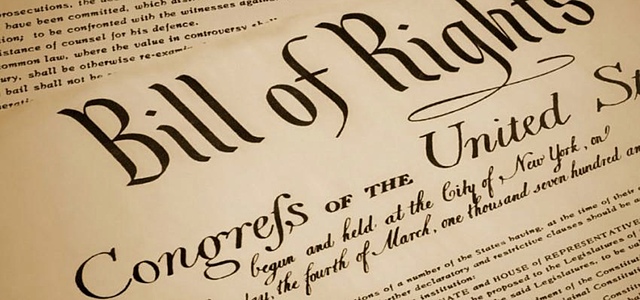 rosecutions, the
have been committed, which
tion; to be confronted with the witnesses against
istance of counsel for his defence.
ommon law, where the value in controversy
ury, shall be otherwise re-exami
bail shall not be
Bill of Rights
Congreſs OF THE United St
begun and held at the City of New York, on
the fourth of March, one thousand seven hundred an
of a number of the States having, at the time of their
declaratory and restrictive clauses should be
institution:
and HOUSE of REPRESENTATIV
proposed to the Legislatures of
Legislatures, to be va
of the Constitu